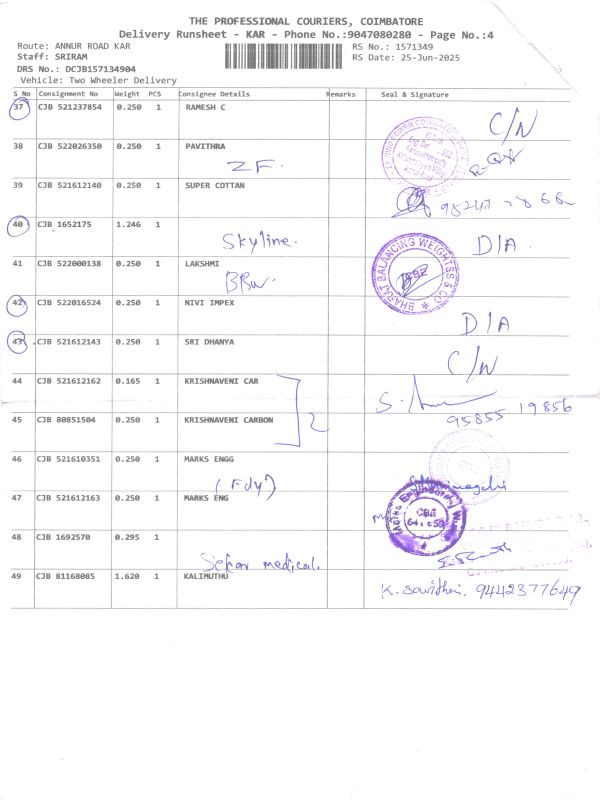 THE PROFESSIONAL COURIERS, COIMBATORE
Delivery Runsheet - KAR - Phone No.:9047080280 - Page No.:4
Route: ANNUR ROAD KAR RS No.: 1571349
Staff: SRIRAM RS Date: 25-Jun-2025
DRS No.: DCJB157134904
Vehicle: Two Wheeler Delivery
S No Consignment No Weight PCS Consignee Details Remarks Seal & Signature
37 CJB 521237854 0.250 1 RAMESH C C/N
38 CJB 522026350 0.250 1 PAVITHRA
ZF.
39 CJB 521612140 0.250 1 SUPER COTTAN
40 CJB 1652175 1.246 1 D/A
Skyline.
41 CJB 522000138 0.250 1 LAKSHMI
BHARAT BALANCING WEIGHTSS & CO
42 CJB 522016524 0.250 1 NIVI IMPEX D/A
43 CJB 521612143 0.250 1 SRI DHANYA C/N
44 CJB 521612162 0.165 1 KRISHNAVENI CAR
2
95855 19856
45 CJB 80851504 0.250 1 KRISHNAVENI CARBON
46 CJB 521610351 0.250 1 MARKS ENGG
(Fdy)
47 CJB 521612163 0.250 1 MARKS ENG
48 CJB 1692570 0.295 1
medical.
49 CJB 81168085 1.620 1 KALIMUTHU
K. Savithri. 9442377649